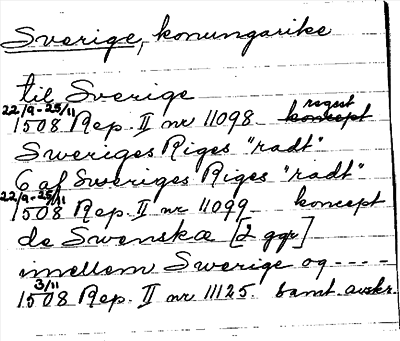 Sverige, konungarike
til Sverige
22/9-25/11 regest
1508 Rep. II nr 11098. koncept
Sweriges Riges "radt"
6 af Sweriges Riges "radt"
22/9-25/11
1508 Rep. II nr 11099 koncept
de Swenskæ [2 ggr]
imellem Swerige og ----
3/11
1508 Rep. II nr 11125. samt. avskr.